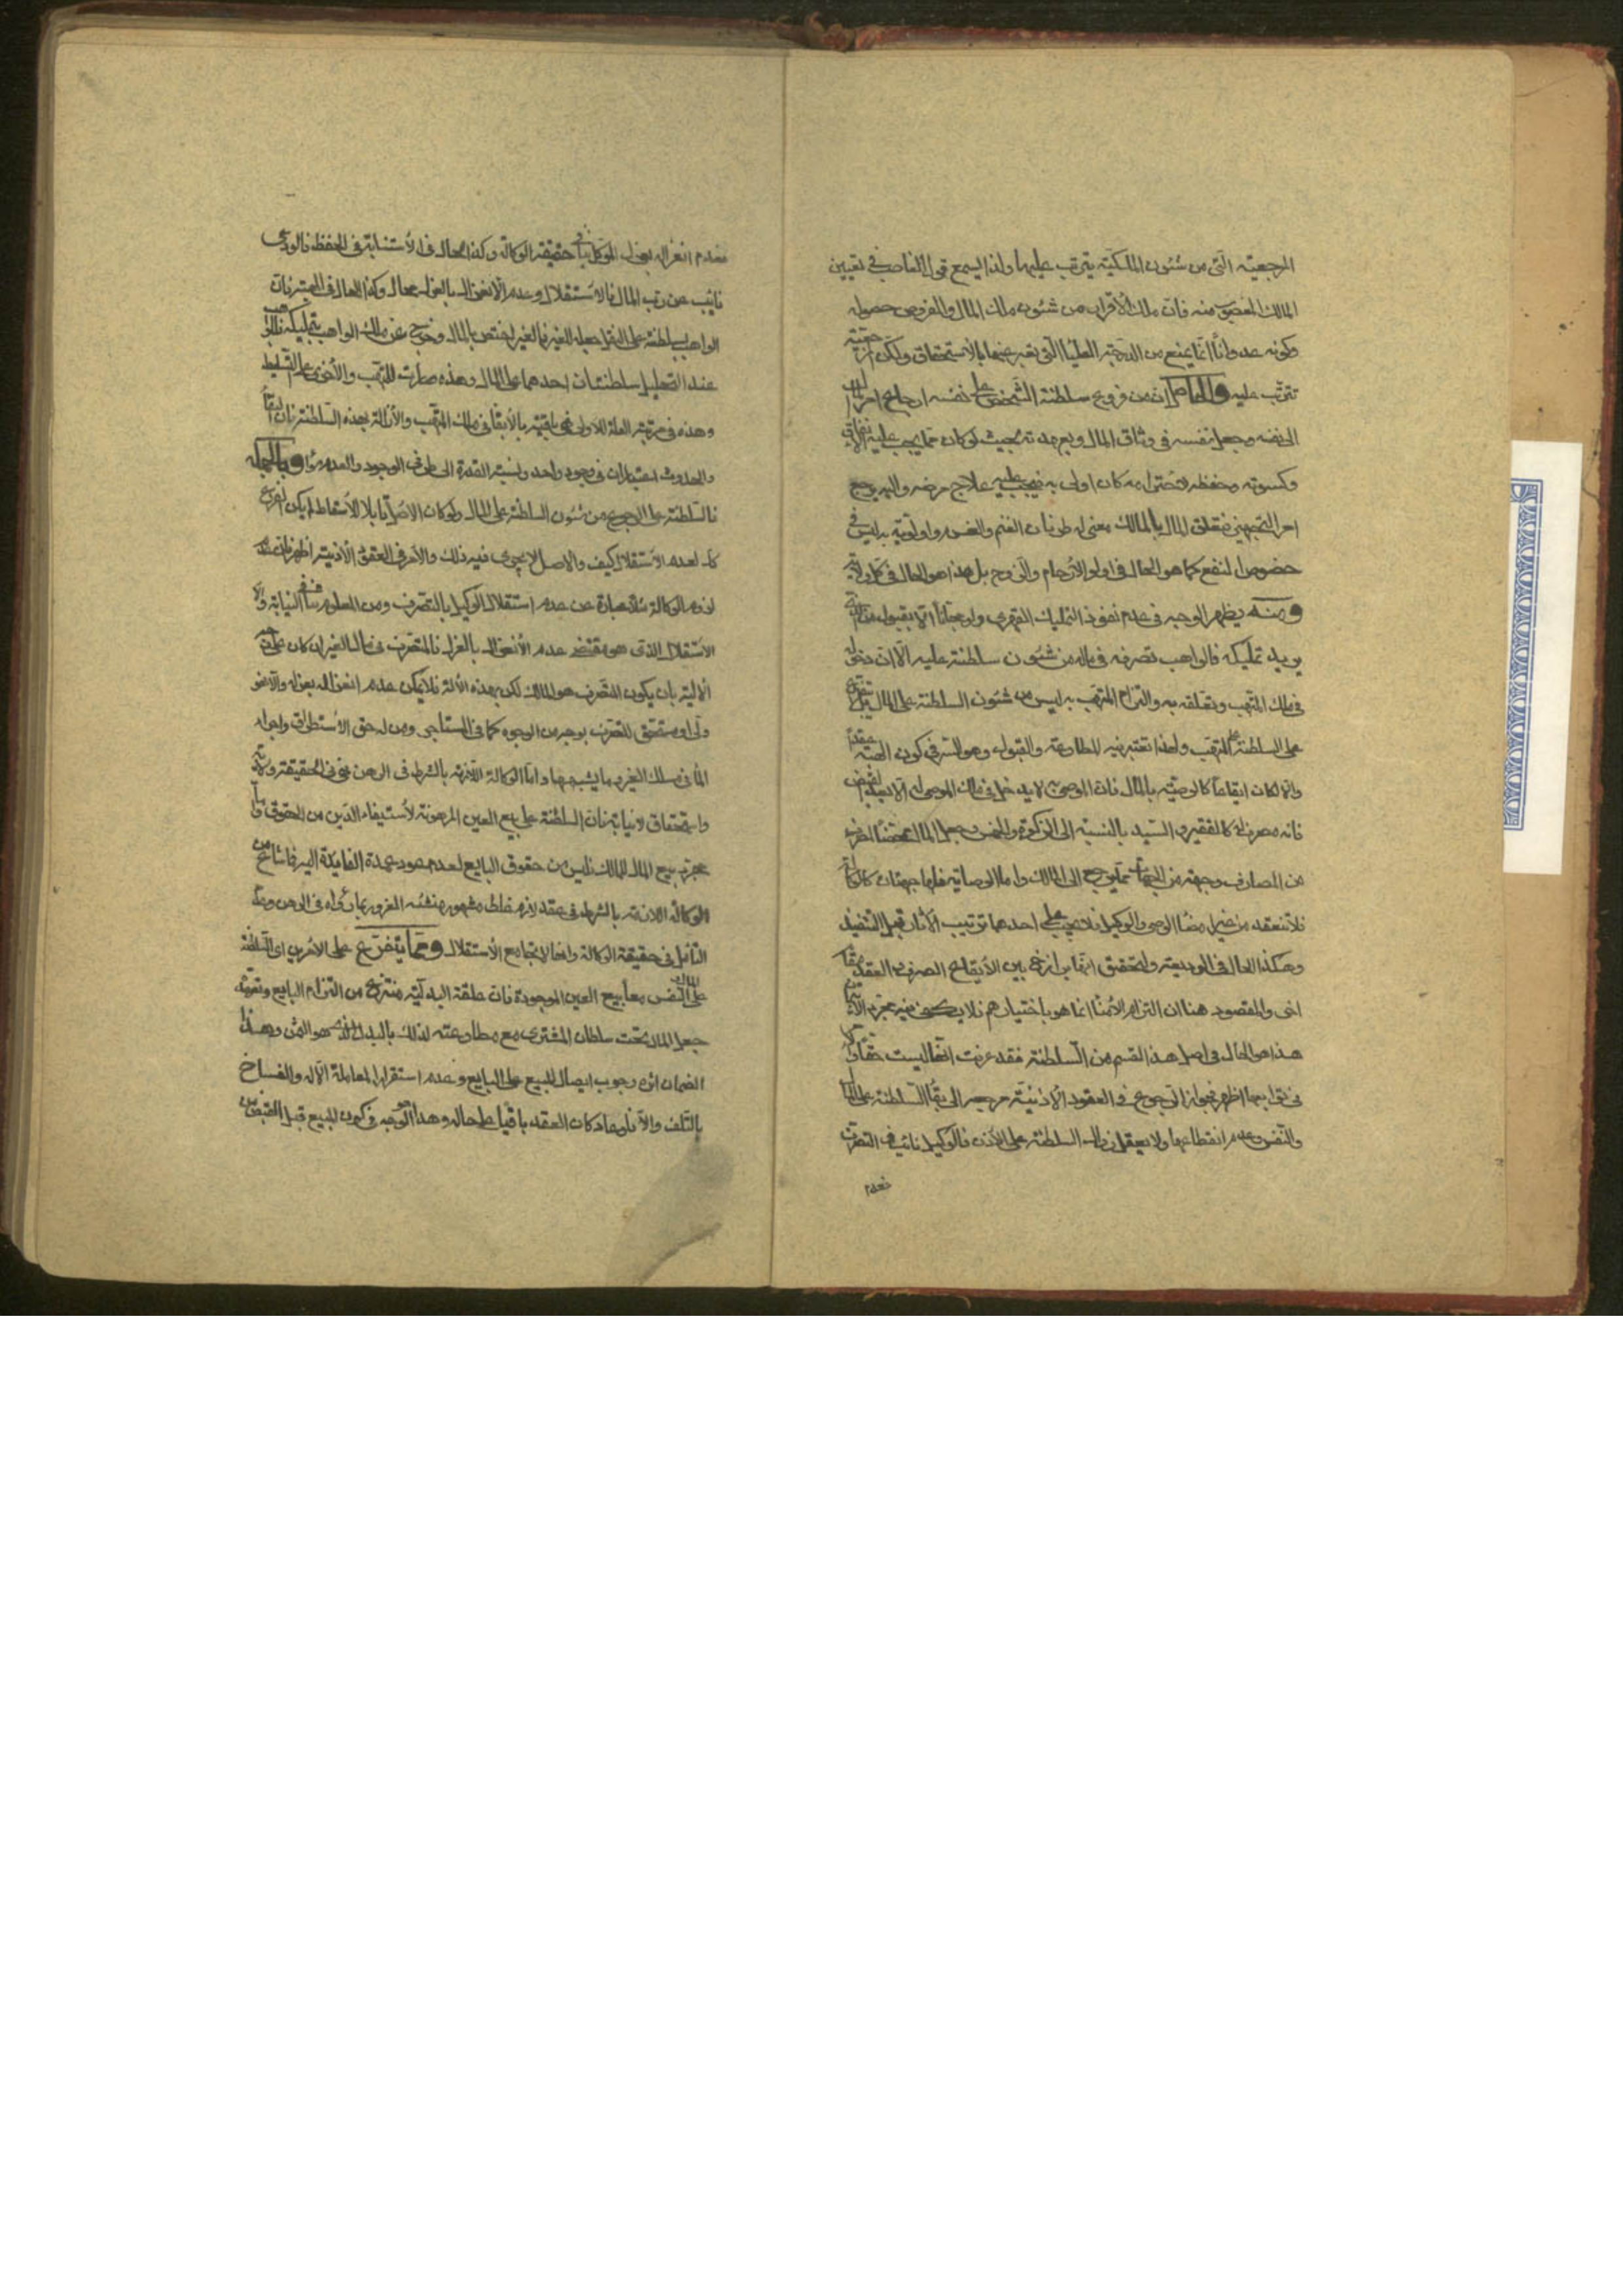 المرجعية التى من شئون الملكية يترتب عليها ولذا يسمع قول الغاصب فى تعيين
المالك المغصوب منه فان ملك الأقرار من شئون ملك المال والمفروض حصوله
وكونه عدوانًا انما يمنع من الدرجة العليا التى نعبر عنها بالاستحقاق ولكن
تترتب عليه والحاصل ان من فروع سلطنة الشخص على نفسه ارجاع امر المال
الى نفسه وجعل نفسه فى وثاق المال وبعهدته بحيث لو كان مما يجب عليه الانفاق
وكسوته وحفظه كان اولى به فيجب عليه علاج مرضه واليه يرجع
امر التجهيز فتعلق المال بالمالك معنى له طرفان الغنم والغرم واولوية به ليس فى
خصوص النفع كما هو الحال فى اولوا الأرحام والزوج بل هذا هو الحال فى كل ولاية
ومنه يظهر الوجه فى عدم نفوذ التمليك القهرى ولو مجانًا الا بقبول من
يريد تمليكه فالواهب تصرفه فى ماله من شئون سلطنته عليه الا ان دخوله
فى ملك المتهب وتعلقه به والتزام المتهب به ليس من شئون السلطنة على المال
على السلطنة على المتهب ولهذا تعتبر فيه المطاوعة والقبول وهو السر فى كون الهبة عقدًا
والا لكان ايقاعًا كالوصية بالمال فان الموصى به لا يدخل فى ملك الموصى له الا بعد القبض
فانه مصرف له كالفقير والسيد بالنسبة الى الزكوة والخمس وجعل المال
من المصارف وجهة من الجهات مما يرجع الى المالك واما الوصاية فلها جهتان كالوكالة
فلا تنعقد من غير رضا الوصى والوكيل فلا يجب على احدهما ترتيب الأثار قبل التنفيذ
وهكذا الحال فى الوديعة والتحقيق انها برازخ بين الأيقاع الصرف والعقد
اخى والمقصود هنا ان التزام الأمناء انما هو باختيارهم فلا يكفى فيه مجرد
هذا هو الحال فى اصل هذا القسم من السلطنة فقد عرفت انها ليست حقًا
فى توابعها اظهر فجواز الرجوع فى العقود الأذنية مرجعه الى بقاء السلطنة على المال
والنفس وعدم انقطاعها ولا يعقل زوال السلطنة على الأذن فالوكيل نائب فى التصرف
فعدم
فعدم انعزاله بعزل الموكل ينافى حقيقة الوكالة وكذا الحال فى الأستنابة فى الحفظ فالودعى
نايب عن رب المال فالاستقلال وعدم الانعزال بالعزل محال وكذا الحال فى الهبة فان
الواهب بسلطنته على المال جعله للغير فالغير اختص بالمال وخرج عن ملك الواهب بتمليكه فللواهب
عند التحليل سلطنتان احدهما على المال وهذه صارت للمتهب والأخرى على التسليط
وهذه فى مرتبة العلة للاولى فهى باقية بالأبقاء فى ملك المتهب والأزالة بهذه السلطنة فان البقاء
والحدوث اعتباران فى وجود واحد ونسبة القدرة الى طرفى الوجود والعدم سواء وبالجملة
فالسلطنة على الرجوع من شئون السلطنة على المال ولو كان الاصل قابلا للأسقاط لم يكن الفرع
كك لعدم الأستقلال كيف والاصل لا يجرى فيه ذلك والأمر فى العقود الأذنية اظهر فان
لزوم الوكالة مثلا عبارة عن عدم استقلال الوكيل بالتصرف ومن المعلوم تنافى النيابة
الاستقلال الذى هو مقتضى عدم الأنعزال بالعزل فالمتصرف فى مال الغير ان كان على
الالية بان يكون المتصرف هو المالك لكن بهذه الألة فلا يمكن عدم انعزاله بعزله والا فهو
ولى او مستحق للتصرف بوجه من الوجوه كما فى المستأجر ومن له حق الأستطراق واجراء
الماء فى ملك الغير وما يشبهها واما الوكالة اللازمة بالشرط فى الرهن فهى فى الحقيقة ولاية
واستحقاق لا نيابة فان السلطنة على بيع العين المرهونة لأستيفاء الدين من الحقوق واما
مجرد بيع المال للمالك فليس من حقوق البايع لعدم عود عمدة الفائدة اليه فما شاع من
الوكالة اللازمة بالشرط فى عقد لازم غلط مشهور منشئه الغرور بما رأوه فى الرهن وعدم
التأمل فى حقيقة الوكالة وانها لا يجامع الأستقلال ومما يتفرع على الامرين اى السلطنة
على المال والنفس معًا بيع العين الموجودة فان علقة البدلية منتزع من التزام البايع وتعهده
جعل المال تحت سلطان المشترى مع مطاوعته لذلك بالبدل الذى هو الثمن وهذا
الضمان اثره وجوب ايصال المبيع على البايع وعدم استقرار المعاملة الا به وانفساخ
بالتلف والا فلو كان العقد باقيًا على حاله وهذا هو الوجه فى كون المبيع قبل القبض من